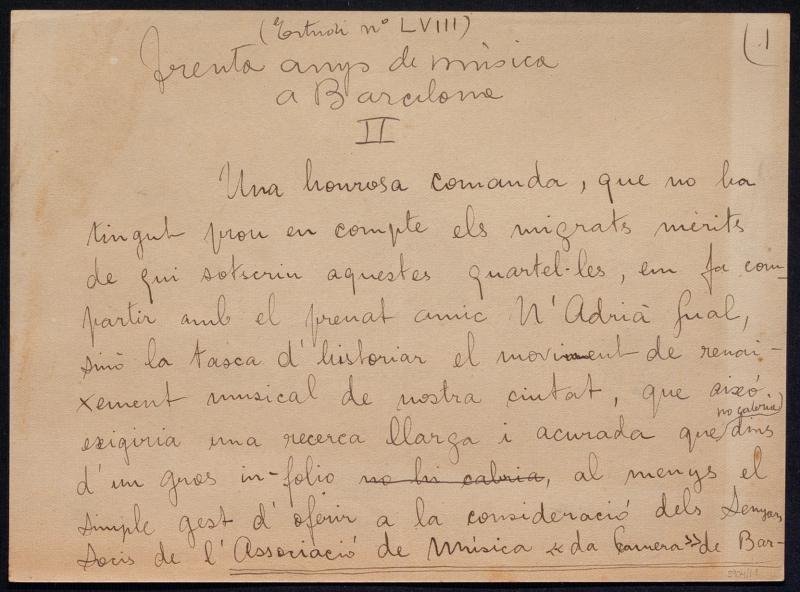 (Estudi nº LVIII)
1
Trenta anys de música
a Barcelona
II
Una honrosa comanda, que no ha
tingut prou en compte els migrats mèrits
de qui sotscriu aquestes quartel·les, em fa com-
partir amb el preuat amic N'Adrià Gual,
sinó la tasca d'historiar el moviment de renai-
xement musical de nostra ciutat, que això
exigiria una recerca llarga i acurada que dins
no cabria
d'un gros in-folio no hi cabria, al menys el
simple gest d'oferir a la consideració dels Senyors
socis de l'Associació de Música «da Camera» de Bar-